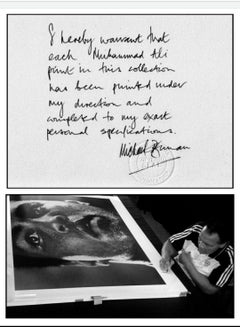 I hereby warrant that
each Muhammad Ali
print in this collection
has been printed under
my direction and
completed to my exact
personal specifications.
Michael